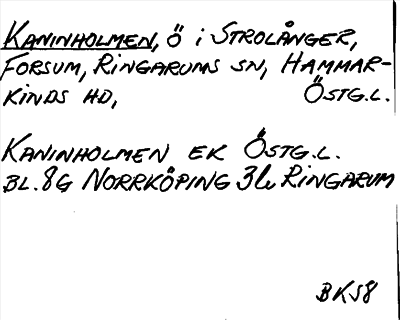 KANINHOLMEN, Ö i STROLÅNGER,
FORSUM, RINGARUMS SN, HAMMAR-
KINDS HD, ÖSTG.L.
KANINHOLMEN EK ÖSTG.L.
BL. 8G NORRKÖPING 3b RINGARUM
BK58